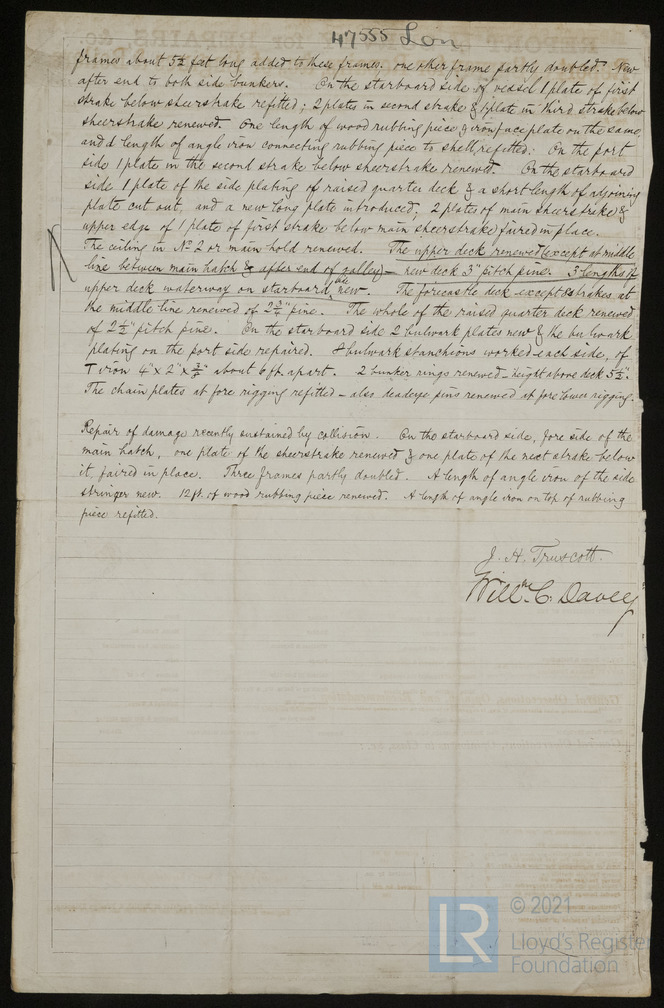 47555 Lon
frames about 5½ feet long added to these frames. one other frame partly doubled. New
after end to both side bunkers. On the starboard side of vessel 1 plate of first
strake below sheerstrake refitted; 2 plates in second strake & 1 plate in third strake below
sheerstrake renewed. One length of wood rubbing piece & iron face plate on the same,
and a length of angle iron connecting rubbing piece to shell refitted: On the port
side 1 plate in the second strake below sheerstrake renewed. On the starboard
side 1 plate of the side plating of raised quarter deck & a short length of adjoining
plate cut out, and a new long plate introduced; 2 plates of main sheerstrake &
upper edge of 1 plate of first strake below main sheerstrake faired in place.
The ceiling in No 2 or main hold renewed. The upper deck renewed (except at middle
line between main hatch & after end of galley) — new deck 3" pitch pine. 3 lengths of
upper deck waterway on starboard side new. The forecastle deck except 8 strakes at
the middle line renewed of 2¾" pine. The whole of the raised quarter deck renewed
of 2½" pitch pine. On the starboard side 2 bulwark plates new & the bulwark
plating on the port side repaired. 8 bulwark stanchions worked each side, of
T iron 4" x 2" x about 6 ft. apart. 2 bunker rings renewed – height above deck 5½".
The chain plates at fore rigging refitted – also deadeye pins renewed at fore lower rigging.
Repair of damage recently sustained by collision. On the starboard side, fore side of the
main hatch, one plate of the sheerstrake renewed & one plate of the next strake below
it, faired in place. Three frames partly doubled. A length of angle iron of the side
stringer new. 12 ft. of wood rubbing piece renewed. A length of angle iron on top of rubbing
piece refitted.
J. H. Truscott.
Willm C. Davey
LR
© 2021
Lloyd's Register
Foundation